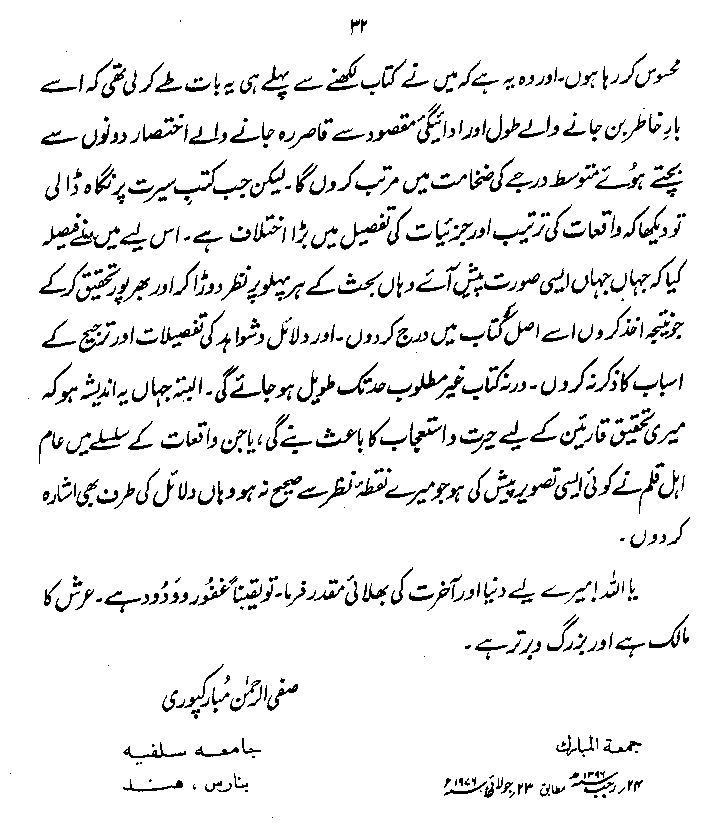 ۳۲
محسوس کر رہا ہوں۔ اور وہ یہ ہے کہ میں نے کتاب لکھنے سے پہلے ہی یہ بات طے کر لی تھی کہ اسے
بارِ خاطر بن جانے والے طول اور ادائیگیٔ مقصود سے قاصر رہ جانے والے اختصار دونوں سے
بچتے ہوئے متوسط درجے کی ضخامت میں مرتب کروں گا۔ لیکن جب کتبِ سیرت پر نگاہ ڈالی
تو دیکھا کہ واقعات کی ترتیب اور جزئیات کی تفصیل میں بڑا اختلاف ہے۔ اس لیے میں نے فیصلہ
کیا کہ جہاں جہاں ایسی صورت پیش آئے وہاں بحث کے ہر پہلو پر نظر دوڑا کر اور بھرپور تحقیق کر کے
جو نتیجہ اخذ کروں اسے اصل کتاب میں درج کر دوں۔ اور دلائل و شواہد کی تفصیلات اور ترجیح کے
اسباب کا ذکر نہ کروں۔ ورنہ کتاب غیر مطلوب حد تک طویل ہو جائے گی۔ البتہ جہاں یہ اندیشہ ہو کہ
میری تحقیق قارئین کے لیے حیرت و استعجاب کا باعث بنے گی، یا جن واقعات کے سلسلے میں عام
اہلِ قلم نے کوئی ایسی تصویر پیش کی ہو جو میرے نقطۂ نظر سے صحیح نہ ہو وہاں دلائل کی طرف بھی اشارہ
کر دوں۔
یا اللہ! میرے لیے دنیا اور آخرت کی بھلائی مقدر فرما۔ تو یقیناً غفور و ودود ہے۔ عرش کا
مالک ہے اور بزرگ و برتر ہے۔
صفی الرحمٰن مُبارکپوری
جمعۃ المبارک جامعہ سلفیہ
۲۴؍ رجب ۱۳۹۶ھ مطابق ۲۳؍ جولائی ۱۹۷۶ء بنارس، ہند